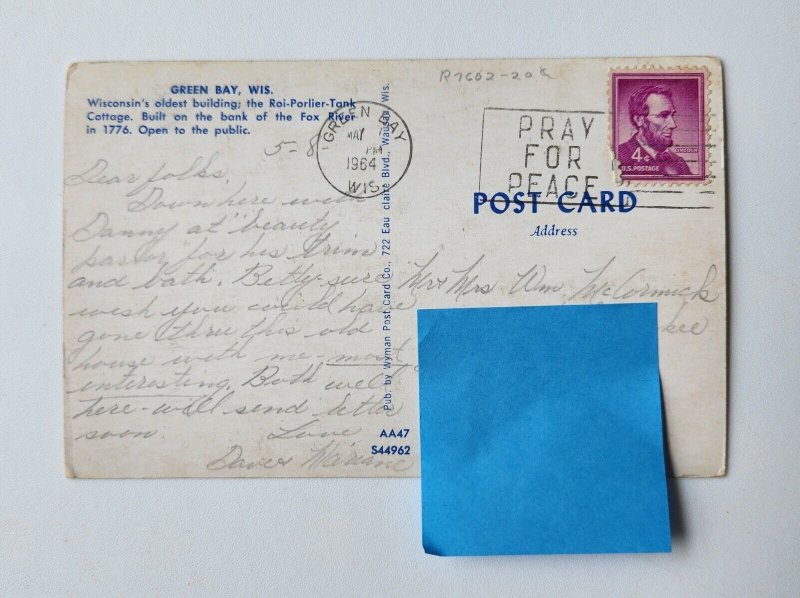 R7602-20
GREEN BAY, WIS.
Wisconsin's oldest building; the Roi-Porlier-Tank
Cottage. Built on the bank of the Fox River
in 1776. Open to the public.
5-8
GREEN BAY
MAY 7
PM
1964
WIS.
PRAY
FOR
PEACE
4¢
LINCOLN
U.S. POSTAGE
POST CARD
Address
Dear folks,
Down here with
Danny at "beauty
parlor" for his trim
and bath. Betty sure
wish you could have
gone thru this old
house with me - most
interesting. Both well
here - will send letter
soon.
Love
Dave &
Mr & Mrs Wm. McCormick
kee
Pub. by Wyman Post Card Co., 722 Eau claire Blvd., Wausau, Wis.
AA47
S44962